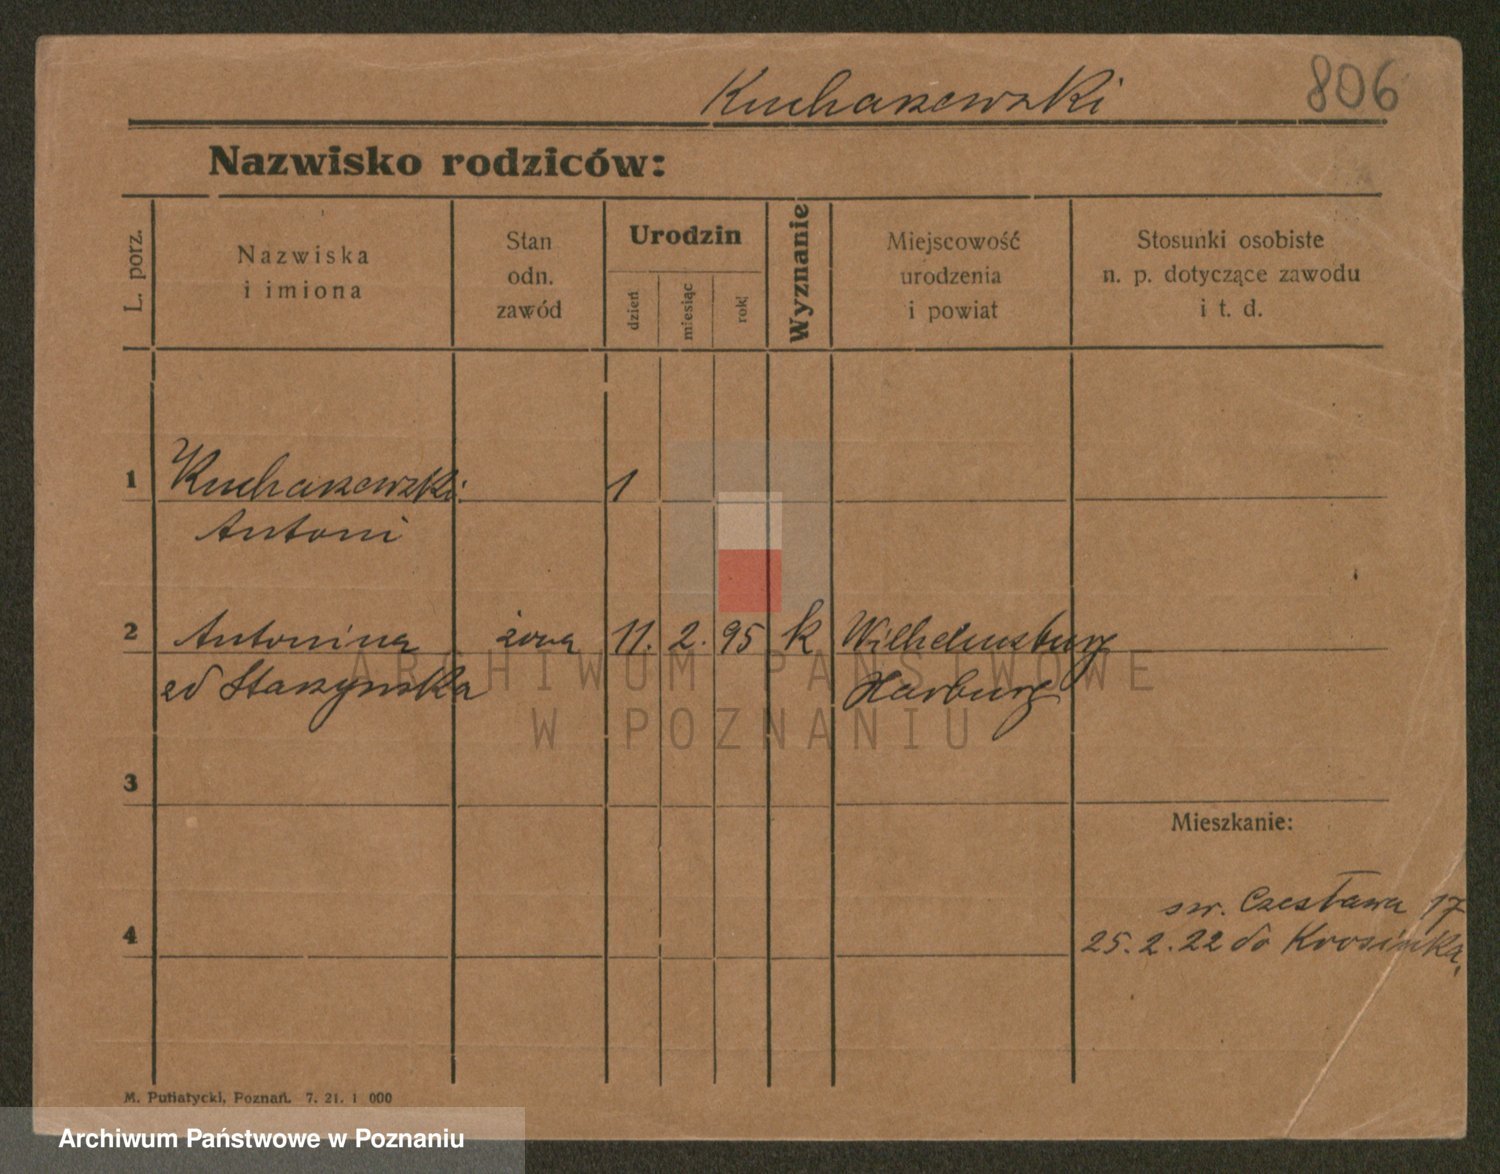 Kucharzewski
806
Nazwisko rodziców:
L. porz.
Nazwiska
i imiona
Stan
odn.
zawód
Urodzin
dzień
miesiąc
rok
Wyznanie
Miejscowość
urodzenia
i powiat
Stosunki osobiste
n. p. dotyczące zawodu
i t. d.
1 Kucharzewski 1
Antoni
2 Antonina żona 11. 2. 95 k Wilhelmsburg
zd Starzynska Harburg
3
Mieszkanie:
św. Czesława 17
4
25.2.22 do Krosinka,
M. Putiatycki, Poznań. 7. 21. 1 000
ARCHIWUM PAŃSTWOWE
W POZNANIU
Archiwum Państwowe w Poznaniu